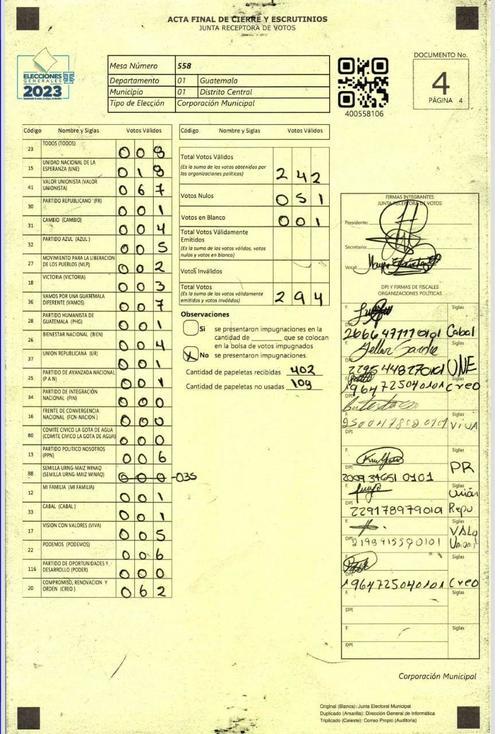 ACTA FINAL DE CIERRE Y ESCRUTINIOS
JUNTA RECEPTORA DE VOTOS
ELECCIONES
GENERALES
2023
Mesa Número 558
Departamento 01 Guatemala
Municipio 01 Distrito Central
Tipo de Elección Corporación Municipal
400558106
DOCUMENTO No.
4
PÁGINA 4
Código Nombre y Siglas Votos Válidos
23 TODOS (TODOS) 008
15 UNIDAD NACIONAL DE LA ESPERANZA (UNE) 018
41 VALOR UNIONISTA (VALOR UNIONISTA) 067
30 PARTIDO REPUBLICANO (PR) 001
31 CAMBIO (CAMBIO) 004
32 PARTIDO AZUL (AZUL) 005
27 MOVIMIENTO PARA LA LIBERACION DE LOS PUEBLOS (MLP) 002
18 VICTORIA (VICTORIA) 003
36 VAMOS POR UNA GUATEMALA DIFERENTE (VAMOS) 007
28 PARTIDO HUMANISTA DE GUATEMALA (PHG) 001
26 BIENESTAR NACIONAL (BIEN) 004
37 UNION REPUBLICANA (UR) 001
25 PARTIDO DE AVANZADA NACIONAL (P A N) 001
34 PARTIDO DE INTEGRACIÓN NACIONAL (PIN) 000
16 FRENTE DE CONVERGENCIA NACIONAL (FCN-NACION) 000
80 COMITÉ CIVICO LA GOTA DE AGUA (COMITÉ CIVICO LA GOTA DE AGUA) 000
13 PARTIDO POLITICO NOSOTROS (PPN) 006
88 SEMILLA URNG-MAIZ WINAQ (SEMILLA URNG-MAIZ WINAQ) 000 -035
12 MI FAMILIA (MI FAMILIA) 001
33 CABAL (CABAL) 001
17 VISION CON VALORES (VIVA) 005
22 PODEMOS (PODEMOS) 006
116 PARTIDO DE OPORTUNIDADES Y DESARROLLO (PODER) 000
20 COMPROMISO, RENOVACION Y ORDEN (CREO) 062
Código Nombre y Siglas Votos Válidos
Total Votos Válidos
(Es la suma de los votos obtenidos por las organizaciones políticas) 242
Votos Nulos 051
Votos en Blanco 001
Total Votos Válidamente Emitidos
(Es la suma de los votos válidos, votos nulos y votos en blanco)
Votos Inválidos
Total Votos
(Es la suma de votos válidamente emitidos y votos inválidos) 294
Observaciones
Si se presentaron impugnaciones en la cantidad de ______ que se colocan en la bolsa de votos impugnados
X No se presentaron impugnaciones
Cantidad de papeletas recibidas 402
Cantidad de papeletas no usadas 108
FIRMAS INTEGRANTES
JUNTA RECEPTORA DE VOTOS
Presidente
Secretario
Vocal
DPI Y FIRMAS DE FISCALES
ORGANIZACIONES POLÍTICAS
Siglas
Cabal
UNE
1964725040101 Creo
VIVA
PR
2291789790101
VALOR
1964725040101 Creo
Siglas
DPI
Siglas
DPI
Corporación Municipal
Original (Blanco): Junta Electoral Municipal
Duplicado (Amarillo): Dirección General de Informática
Triplicado (Celeste): Correo Propio (Auditoría)